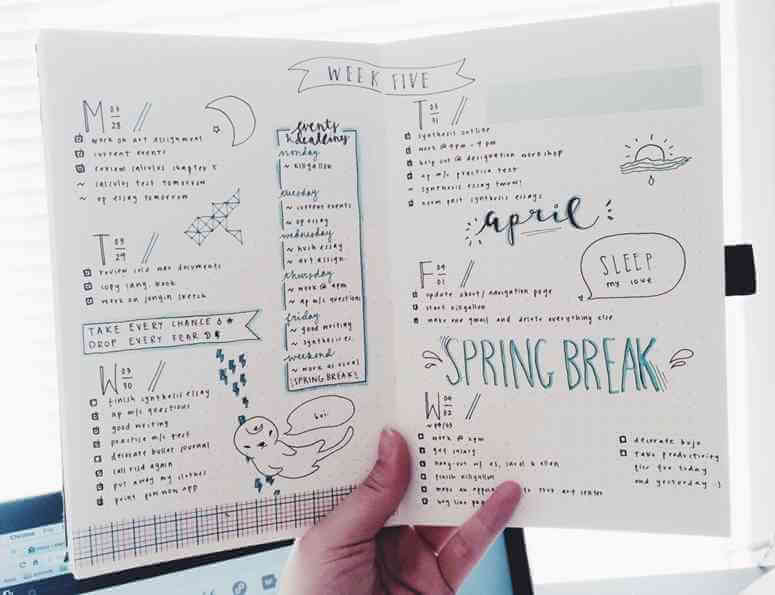 WEEK FIVE
M 03 28
work on art assignment
current events
review calculus chapter 5
~ calculus test tomorrow
~ op essay tomorrow
T 03 29
review cold war documents
copy lang. book
work on jongin sketch
TAKE EVERY CHANCE
DROP EVERY FEAR
W 03 30
finish synthesis essay
ap m/c questions
good writing
practice m/c test
decorate bullet journal
call risd again
put away my clothes
events
& deadlines
monday
~ killgallon
tuesday
~ current events
~ op essay
wednesday
~ hush essay
~ art assign.
thursday
~ work @ 4pm
~ ap m/c questions
friday
~ good writing
~ synthesis es.
weekend
~ work as usual
SPRING BREAK!
T 03 31
synthesis outline
work @ 4pm - 9pm
help out @ designation workshop
ap m/c practice test
~ synthesis essay tmrw!
norm past synthesis essays
april
F 04 01
update about/navigation page
start killgallon
make one gmail and delete everything else
SLEEP
my love
SPRING BREAK
W 04 02
~ 04/03
work @ 2pm
get salary
finish killgallon
decorate bujo
take productivity
pics for today
and yesterday :)